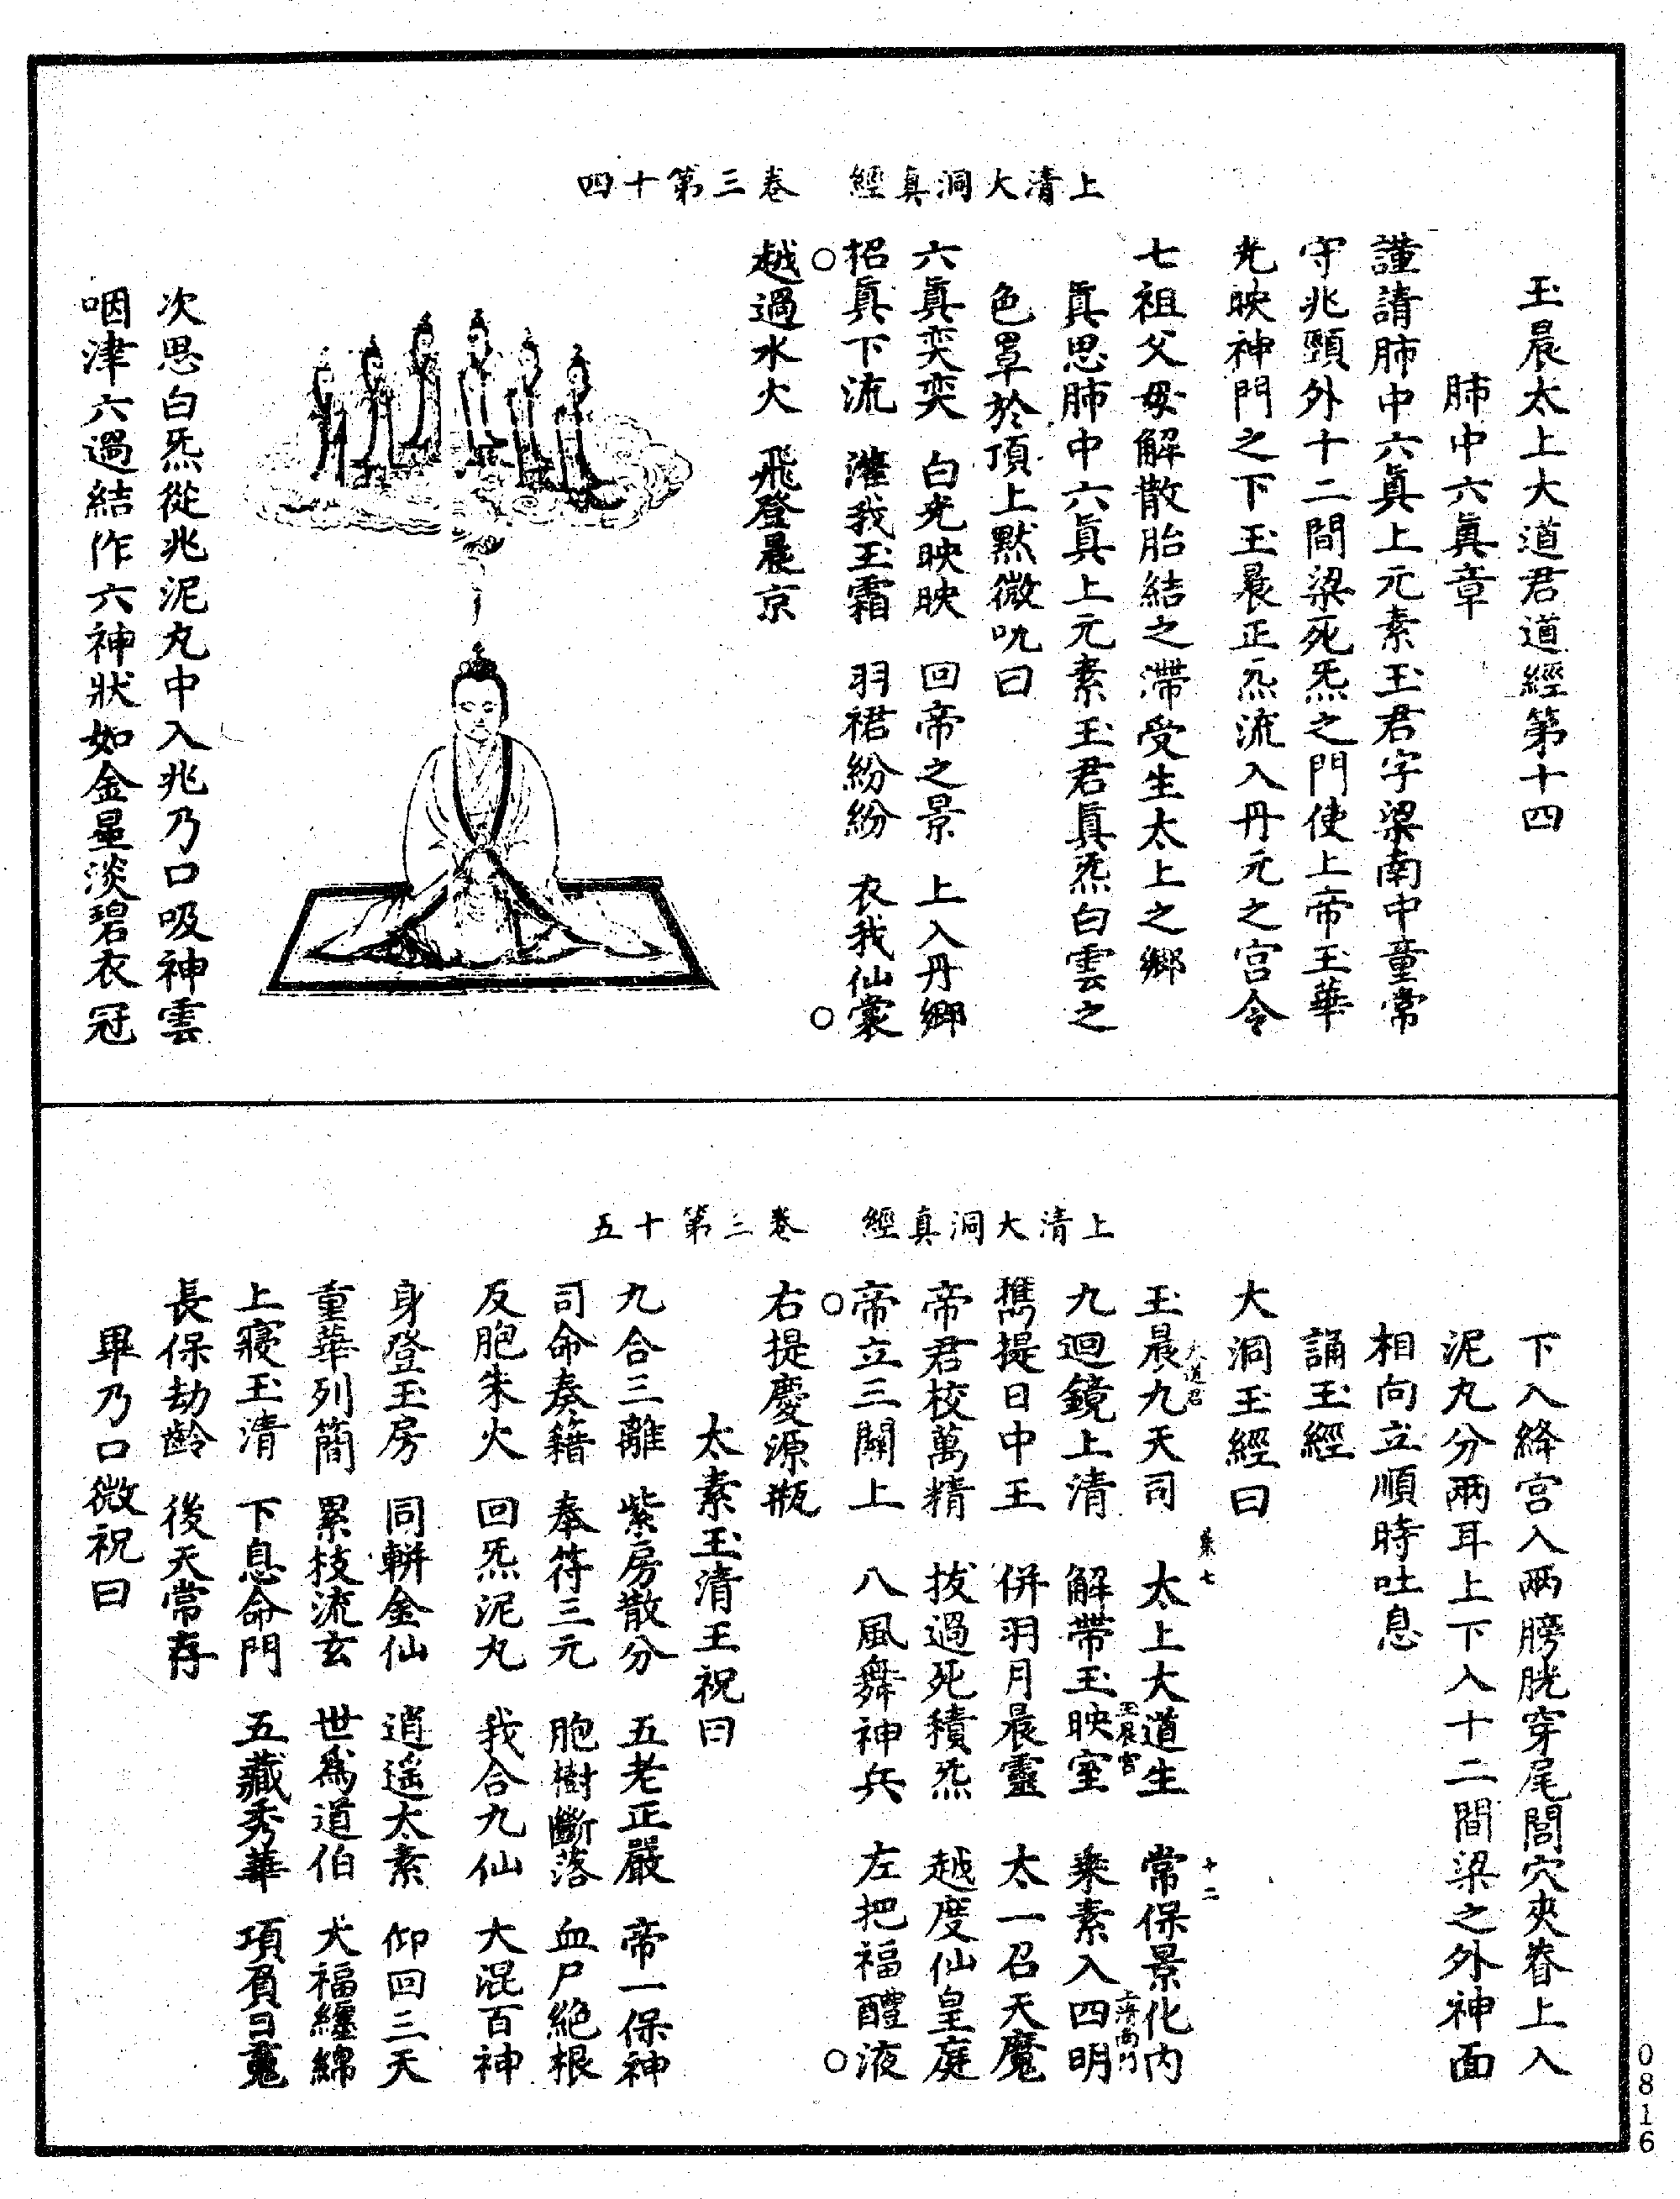 上清大洞真經　卷三第十四
玉晨太上大道君道經第十四
肺中六眞章
謹請肺中六眞上元素玉君字梁南中童常
守兆頸外十二間梁死炁之門使上帝玉華
光映神門之下玉晨正炁流入丹元之宮令
七祖父母解散胎結之滯受生太上之鄉
眞思肺中六眞上元素玉君眞炁白雲之
色罩於頂上默微呪曰
六眞奕奕　白光映映　回帝之景　上入丹鄉
招眞下流　灌我玉霜　羽裙紛紛　衣我仙裳
○越過水火　飛登晨京○
次思白炁從兆泥丸中入兆乃口吸神雲
咽津六過結作六神狀如金星淡碧衣冠
上清大洞真經　卷三第十五
下入絳宮入兩膀胱穿尾閭穴夾脊上入
泥丸分兩耳上下入十二間梁之外神面
相向立順時吐息
誦玉經
大洞玉經曰
玉晨九天司大道君　太上大道生　常保景化內
九迴鏡上清　解帶玉映室玉晨宮　乘素入四明上清南門
攜提日中王　併羽月晨靈　太一召天魔
帝君校萬精　拔過死積炁　越度仙皇庭
帝立三關上　八風舞神兵　左把福醴液
○右提慶源瓶○
太素玉清王祝曰
九合三離　紫房散分　五老正嚴　帝一保神
司命奏籍　奉符三元　胞樹斷落　血尸絕根
反胞朱火　回炁泥丸　我合九仙　大混百神
身登玉房　同軿金仙　逍遙太素　仰回三天
重華列簡　累枝流玄　世為道伯　大福纏綿
上寢玉清　下息命門　五藏秀華　項負日𩲃
長保劫齡　後天常存
畢乃口微祝曰
七
十二
0816